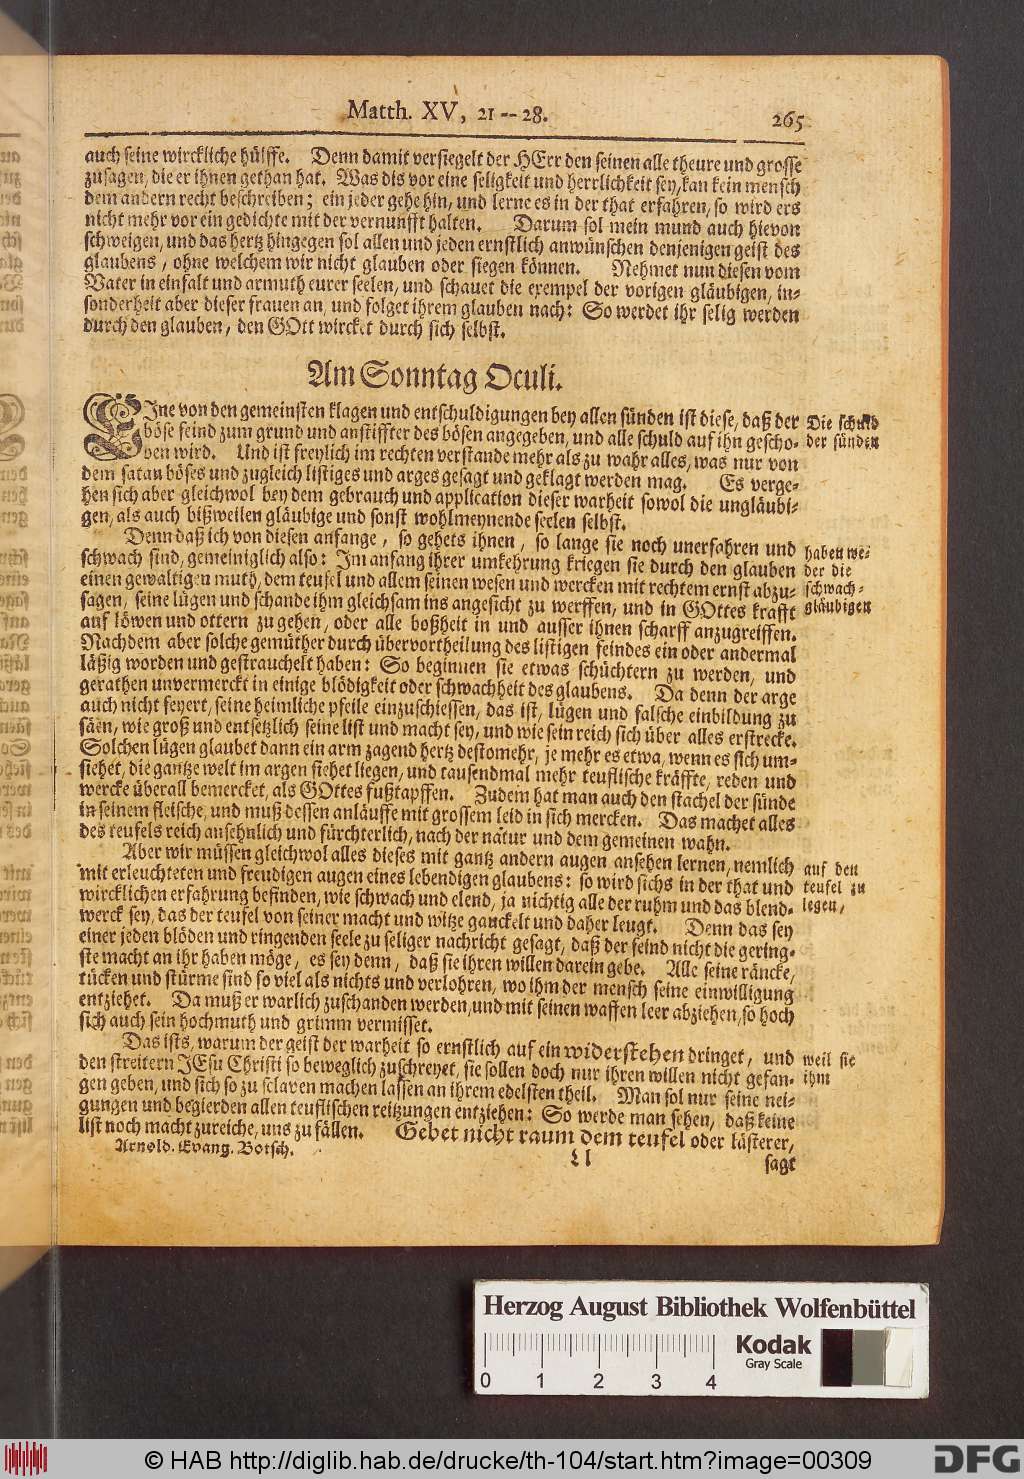 Matth. XV, 21--28.
265
auch seine wirckliche hülffe. Denn damit versiegelt der HErr den seinen alle theure und grosse
zusagen, die er ihnen gethan hat. Was dis vor eine seligkeit und herrlichkeit sey, kan kein mensch
dem andern recht beschreiben; ein jeder gehe hin, und lerne es in der that erfahren, so wird ers
nicht mehr vor ein gedichte mit der vernunfft halten. Darum sol mein mund auch hievon
schweigen, und das hertz hingegen sol allen und jeden ernstlich anwünschen denjenigen geist des
glaubens, ohne welchem wir nicht glauben oder siegen können. Nehmet nun diesen vom
Vater in einfalt und armuth eurer seelen, und schauet die exempel der vorigen gläubigen, in-
sonderheit aber dieser frauen an, und folget ihrem glauben nach: So werdet ihr selig werden
durch den glauben, den GOtt wircket durch sich selbst.
Am Sonntag Oculi.
EIne von den gemeinsten klagen und entschuldigungen bey allen sünden ist diese, daß der
böse feind zum grund und anstiffter des bösen angegeben, und alle schuld auf ihn gescho-
ben wird. Und ist freylich im rechten verstande mehr als zu wahr alles, was nur von
dem satan böses und zugleich listiges und arges gesagt und geklagt werden mag. Es verge-
hen sich aber gleichwol bey dem gebrauch und application dieser warheit sowol die ungläubi-
gen, als auch bißweilen gläubige und sonst wohlmeynende seelen selbst.
Die schuld
der sünden
Denn daß ich von diesen anfange, so gehets ihnen, so lange sie noch unerfahren und
schwach sind, gemeiniglich also: Im anfang ihrer umkehrung kriegen sie durch den glauben
einen gewaltigen muth, dem teufel und allem seinen wesen und wercken mit rechtem ernst abzu-
sagen, seine lügen und schande ihm gleichsam ins angesicht zu werffen, und in GOttes krafft
auf löwen und ottern zu gehen, oder alle boßheit in und ausser ihnen scharff anzugreiffen.
Nachdem aber solche gemüther durch übervortheilung des listigen feindes ein oder andermal
läßig worden und gestrauchelt haben: So beginnen sie etwas schüchtern zu werden, und
gerathen unvermerckt in einige blödigkeit oder schwachheit des glaubens. Da denn der arge
auch nicht feyert, seine heimliche pfeile einzuschiessen, das ist, lügen und falsche einbildung zu
säen, wie groß und entsetzlich seine list und macht sey, und wie sein reich sich über alles erstrecke.
Solchen lügen glaubet dann ein arm zagend hertz destomehr, je mehr es etwa, wenn es sich um-
siehet, die gantze welt im argen siehet liegen, und tausendmal mehr teuflische kräffte, reden und
wercke überall bemercket, als GOttes fußtapffen. Zudem hat man auch den stachel der sünde
in seinem fleische, und muß dessen anläuffe mit grossem leid in sich mercken. Das machet alles
des teufels reich ansehnlich und fürchterlich, nach der natur und dem gemeinen wahn.
haben we-
der die
schwach-
gläubigen
Aber wir müssen gleichwol alles dieses mit gantz andern augen ansehen lernen, nemlich
mit erleuchteten und freudigen augen eines lebendigen glaubens: so wird sichs in der that und
wircklichen erfahrung befinden, wie schwach und elend, ja nichtig alle der ruhm und das blend-
werck sey, das der teufel von seiner macht und witze gauckelt und daher leugt. Denn das sey
einer jeden blöden und ringenden seele zu seliger nachricht gesagt, daß der feind nicht die gering-
ste macht an ihr haben möge, es sey denn, daß sie ihren willen darein gebe. Alle seine räncke,
tücken und stürme sind so viel als nichts und verlohren, wo ihm der mensch seine einwilligung
entziehet. Da muß er warlich zuschanden werden, und mit seinen waffen leer abziehen, so hoch
sich auch sein hochmuth und grimm vermisset.
auf den
teufel zu
legen,
Das ists, warum der geist der warheit so ernstlich auf ein widerstehen dringet, und
den streitern JEsu Christi so beweglich zuschreyet, sie sollen doch nur ihren willen nicht gefan-
gen geben, und sich so zu sclaven machen lassen an ihrem edelsten theil. Man sol nur seine nei-
gungen und begierden allen teuflischen reitzungen entziehen: So werde man sehen, daß keine
list noch macht zureiche, uns zu fällen. Gebet nicht raum dem teufel oder lästerer,
weil sie
ihm
Arnold. Evang. Botsch.
Ll
sagt
Herzog August Bibliothek Wolfenbüttel
Kodak
Gray Scale
0 1 2 3 4
© HAB http://diglib.hab.de/drucke/th-104/start.htm?image=00309
DFG